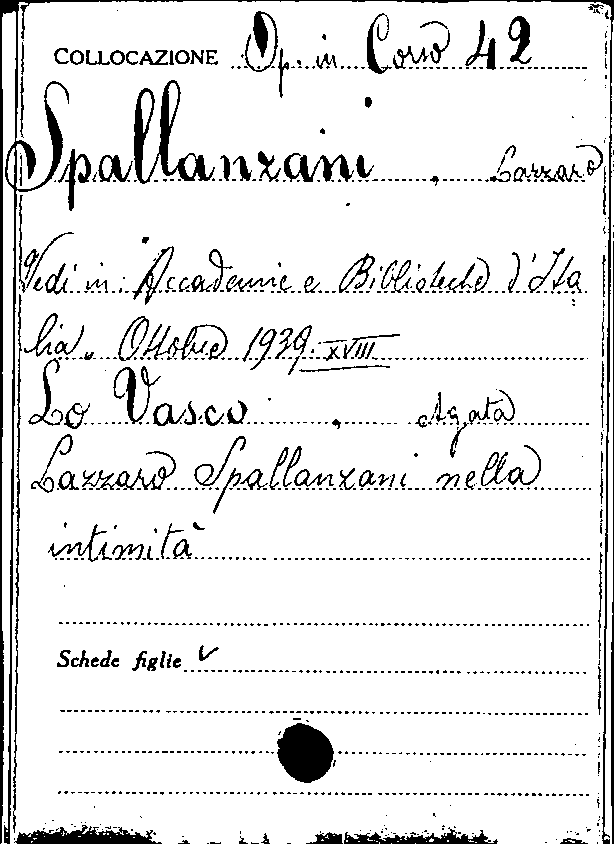 COLLOCAZIONE Op. in Corso 42
Spallanzani, Lazzaro
Vedi in: Accademie e Biblioteche d'Ita
lia. Ottobre 1939. XVIII
Lo Vasco, Agata
Lazzaro Spallanzani nella
intimità
Schede figlie ✓